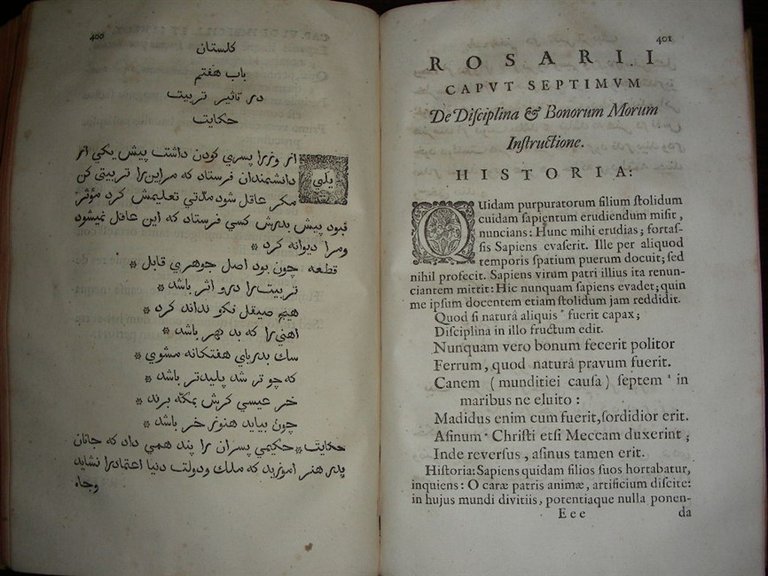 400
كلستان
باب هفتم
در تاثير تربيت
حكايت
يكي از وزرا پسري كودن داشت پيش يكي از
دانشمندان فرستاد كه مراين را تربيتي كن
مكر عاقل شود مدتي تعليمش كرد مؤثر
نبود پيش پدرش كسي فرستاد كه اين عاقل نميشود
ومرا ديوانه كرد *
قطعه چون بود اصل جوهري قابل *
تربيت را درو اثر باشد *
هيچ صيقل نكو نداند كرد *
اهني را كه بد كهر باشد *
سك بدرياي هفتكانه مشوي *
كه چو تر شد پليدتر باشد *
خر عيسي كرش بمكه برند *
چون بيايد هنوز خر باشد *
حكايت * حكيمي پسران را پند همي داد كه جانان
پدر هنر اموزيد كه ملك ودولت دنيا اعتمادرا نشايد
وجاه
401
ROSARII
CAPVT SEPTIMVM
De Disciplina & Bonorum Morum
Instructione.
HISTORIA:
QUidam purpuratorum filium stolidum
cuidam sapientum erudiendum misit,
nuncians: Hunc mihi erudias; fortas-
sis Sapiens evaserit. Ille per aliquod
temporis spatium puerum docuit; sed
nihil profecit. Sapiens virum patri illius ita renun-
ciantem mittit: Hic nunquam sapiens evadet; quin
me ipsum docentem etiam stolidum jam reddidit.
Quod si naturâ aliquis fuerit capax;
Disciplina in illo fructum edit.
Nunquam vero bonum fecerit politor
Ferrum, quod naturâ pravum fuerit.
Canem (munditiei causa) septem in
maribus ne eluito:
Madidus enim cum fuerit, sordidior erit.
Asinum Christi etsi Meccam duxerint;
Inde reversus, asinus tamen erit.
Historia: Sapiens quidam filios suos hortabatur,
inquiens: O caræ patris animæ, artificium discite:
in hujus mundi divitiis, potentiaque nulla ponen-
Eee da